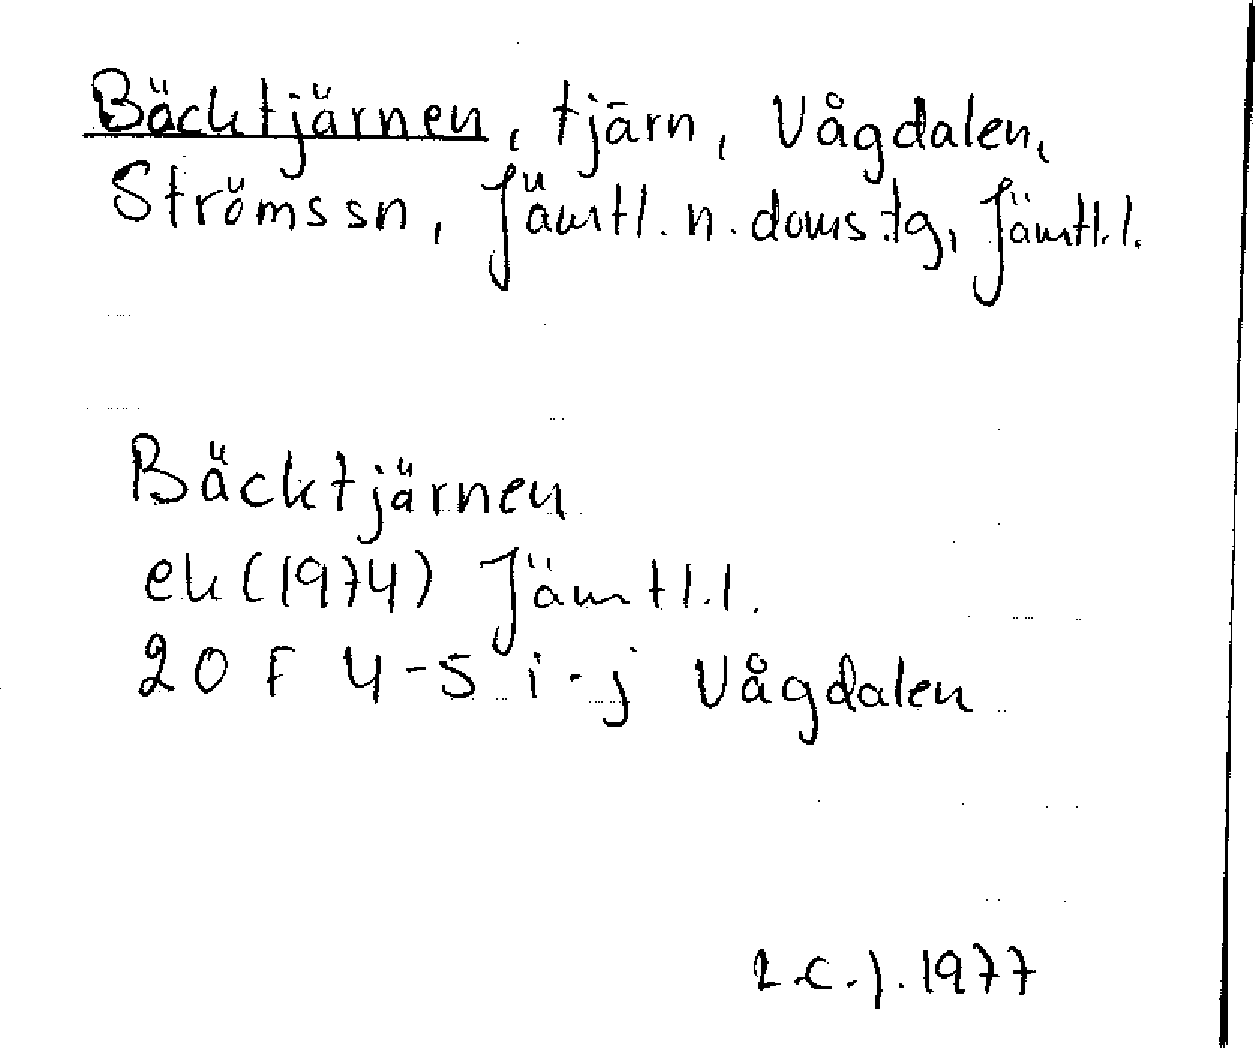 Bäcktjärnen, tjärn, Vågdalen,
Ströms sn, Jämtl. n. doms:tg, Jämtl.l.
Bäcktjärnen
ek (1974) Jämtl.l.
20 F 4-5 i-j Vågdalen
L.C.J. 1977